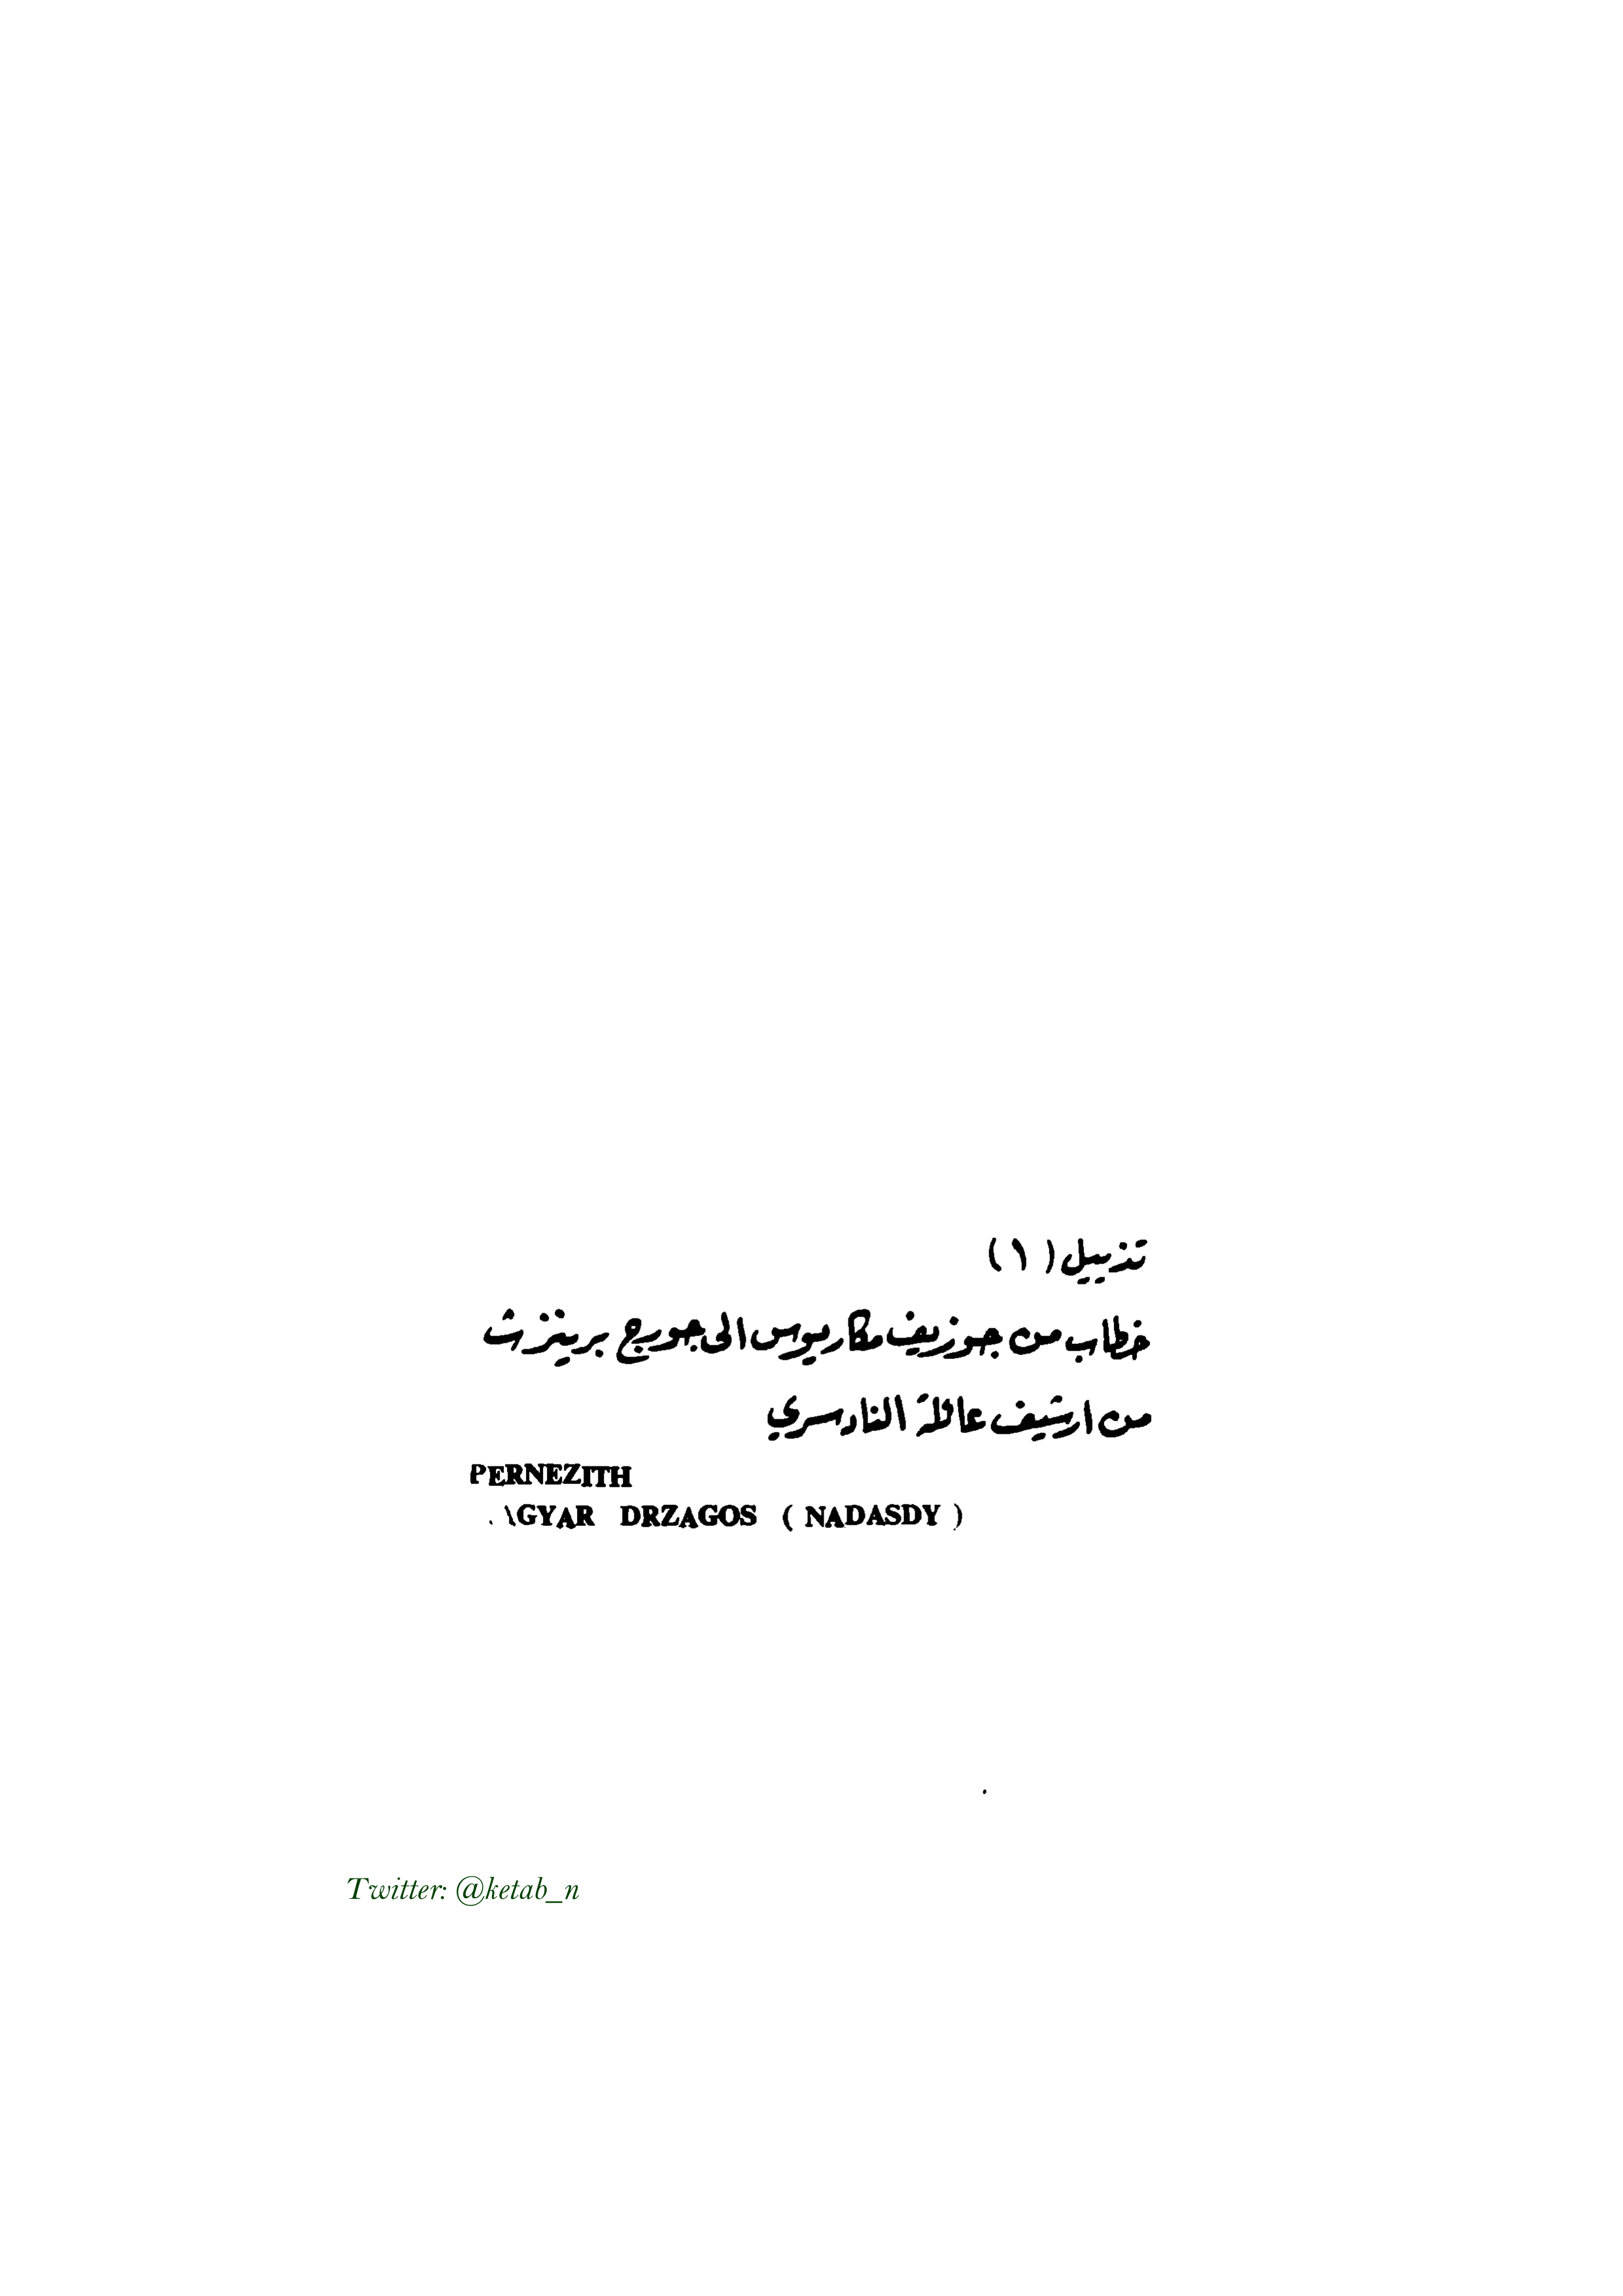 تذييل (١)
خطاب من جوزيف مكاريوس الى جورج برينزث
من ارشيف عائلة النادسري
PERNEZITH
\GYAR DRZAGOS ( NADASDY )
Twitter: @ketab_n